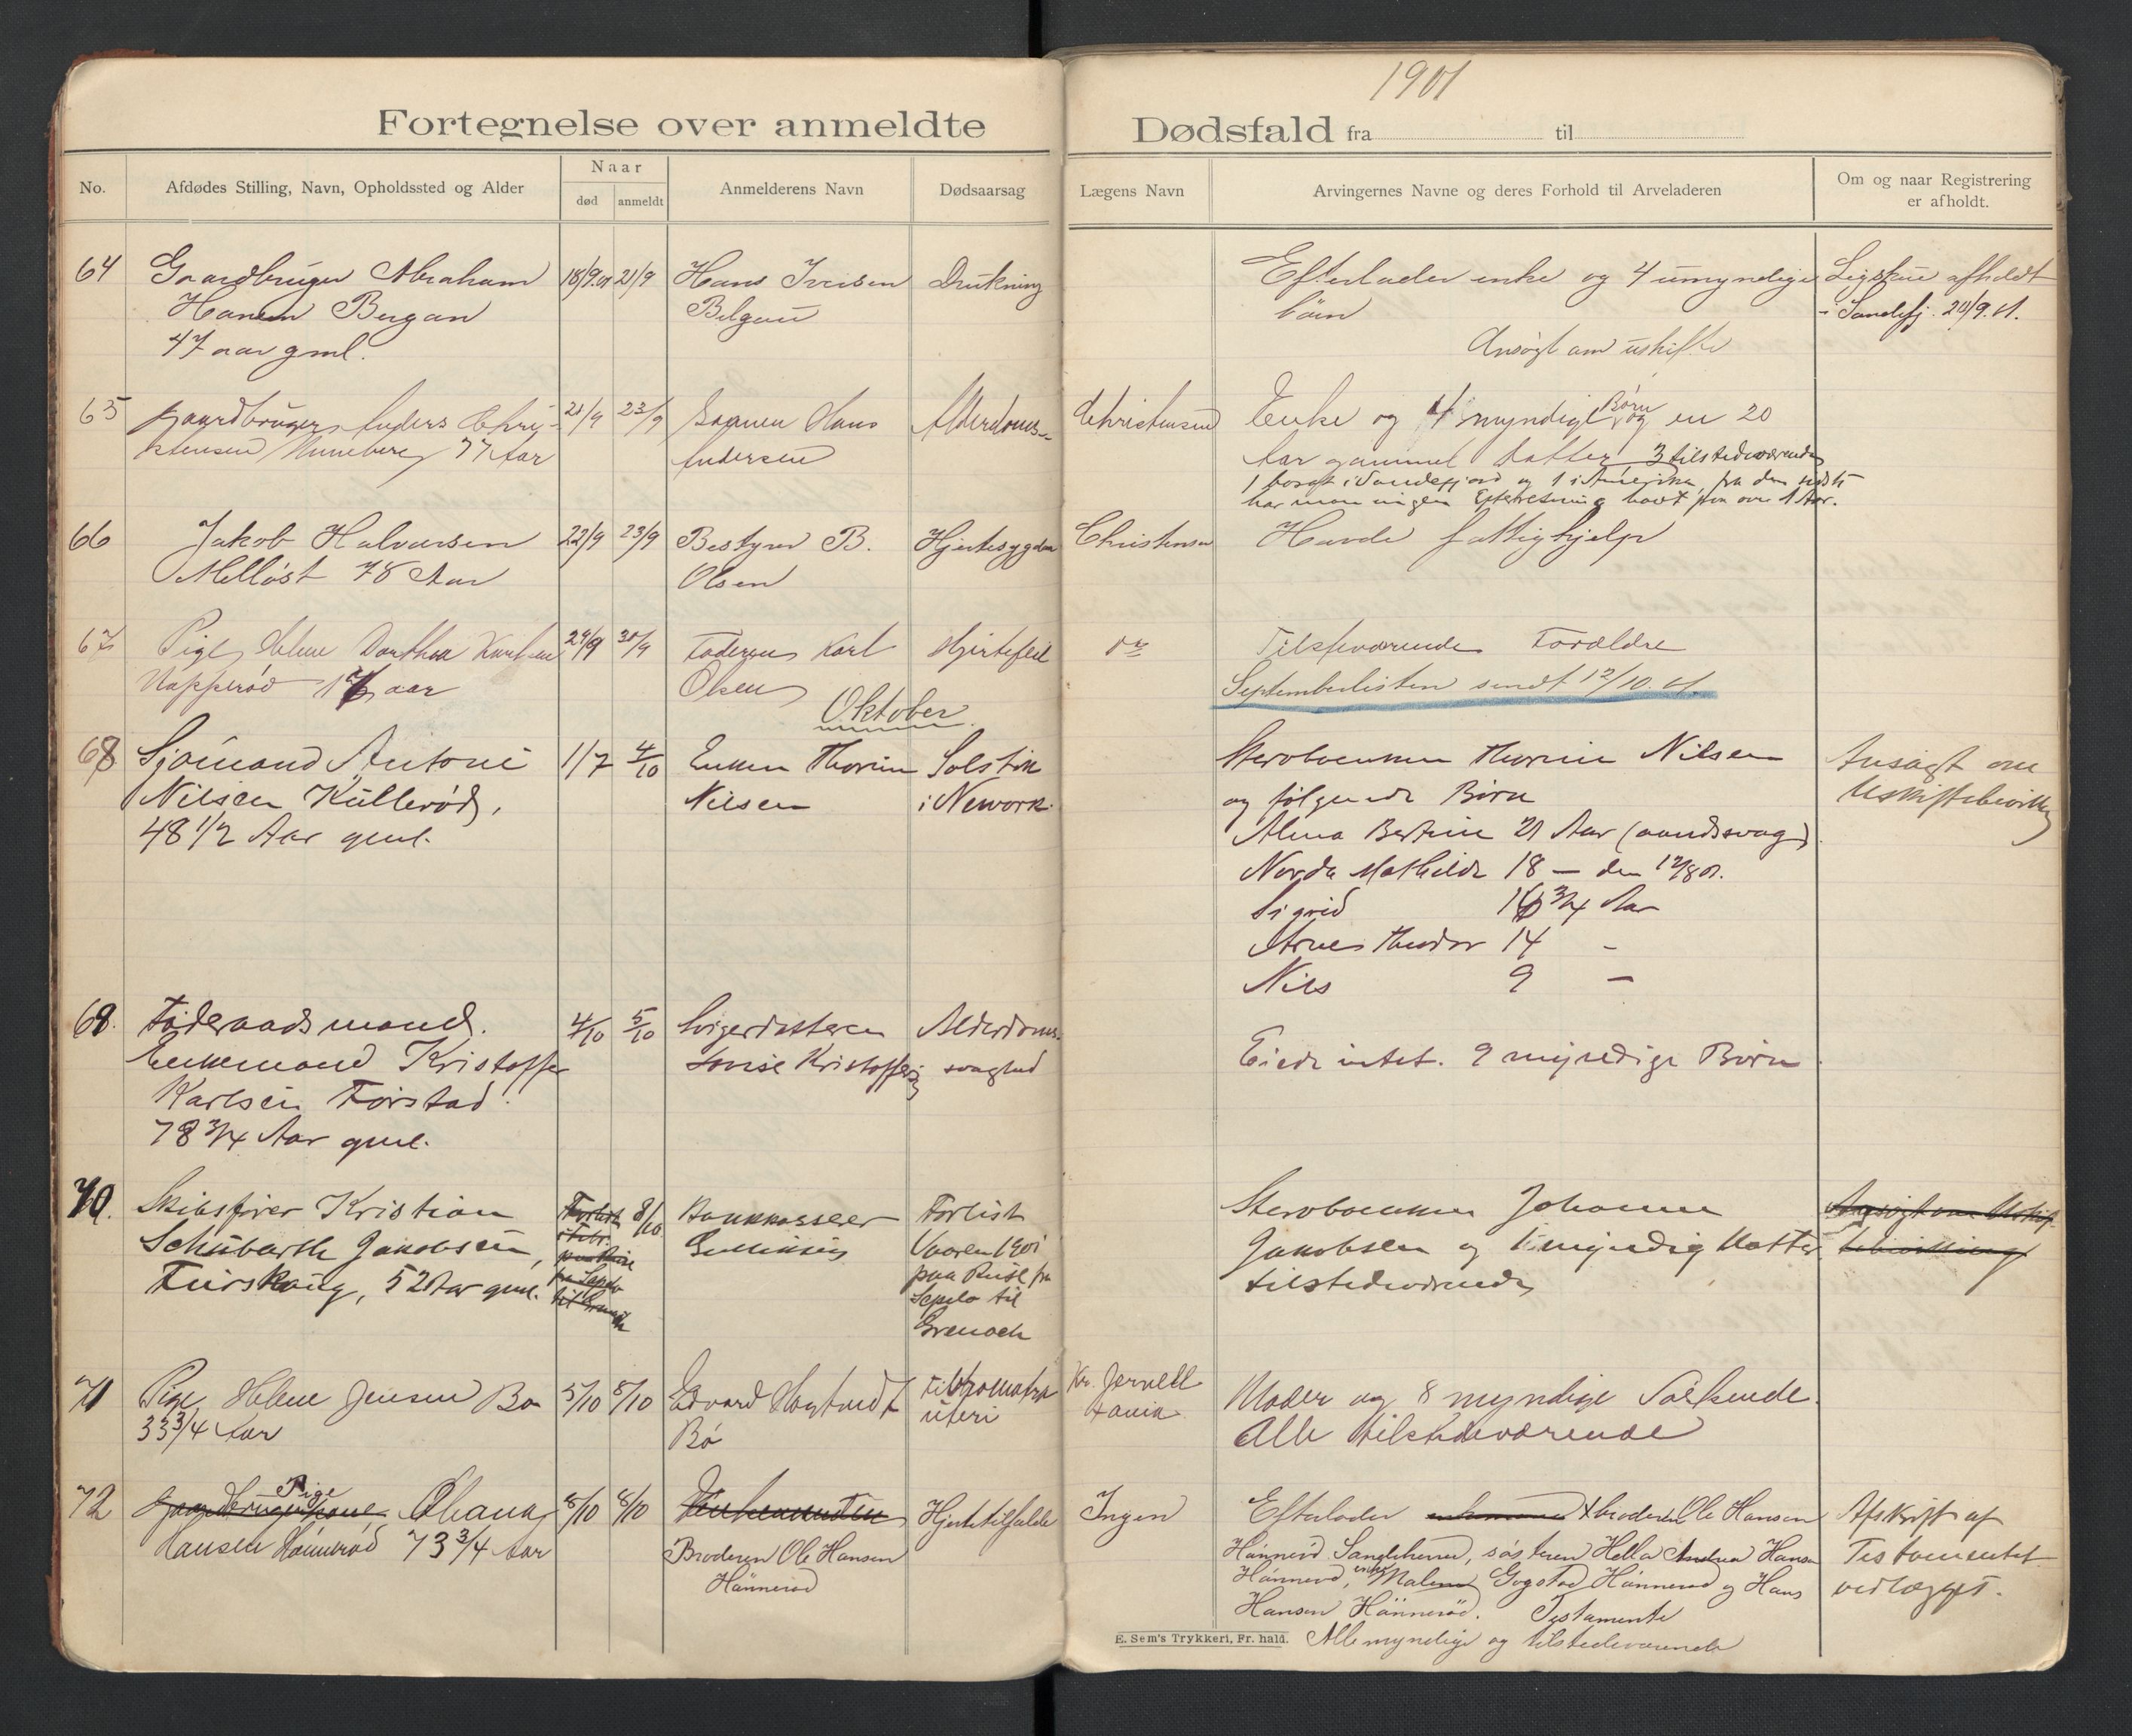 1901
Fortegnelse over anmeldte Dødsfald fra til
No.
Afdødes Stilling, Navn, Opholdssted og Alder
Naar
død
anmeldt
Anmelderens Navn
Dødsaarsag
Lægens Navn
Arvingernes Navne og deres Forhold til Arveladeren
Om og naar Registrering
er afholdt.
64 Gaardbruger Abraham 18/9.01 21/9 Hans Iversen Drukning Efterlader enke og 4 umyndige Ligskue afholdt
Hansen Bergan børn i Sandefj. 20/9.01.
47 aar gml. Ansøgt om uskifte
65 Gaardbruger Anders Chri- 21/9 23/9 Sønnen Hans Alderdoms- Christensen Enke og 4 myndige Børn og en 20
stensen Unneberg 77 Aar Andersen Aar gammel Datter 3 tilstedeværende
1 bosat i Sandefjord og 1 i Amerika, fra den sidste
har man ingen Efterretning havt paa over 1 Aar.
66 Jakob Halvorsen 22/9 23/9 Bestyrer B. Hjertesygdom Christensen Havde fattighjelp
78 Aar Olsen
67 Pige Helene Dorthea 29/9 30/9 Faderen Karl Hjertefeil Tilstedeværende Forældre
aar Olsen Septemberlisten sendt 12/10.01.
Oktober
68 Sjømand Antoni 1/7 4/10 Enken Thorine Solstik Sterboenken Thorine Nilsen Ansøgt om
Nilsen Kullerød, Nilsen i Nework. og følgende Børn Uskiftebevilling
48 1/2 Aar gml. Alma Bertine 21 Aar (aandssvag)
Norda Mathilde 18 — den 12/8 01.
Sigrid 16 3/4 Aar
Arnes Theodor 14 -
Nils 9 —
69. Føderaadsmand. 4/10 5/10 Svigerdatteren Alderdoms-
Enkemand Kristoffer Lovise Kristoffersen svaghed Eiede intet. 9 myndige Børn
Karlsen Førstad
78 3/4 Aar gml.
70. Skibsfører Kristian 8/10 Bankkasserer Forlist Sterboenken Johanne Ansøgt om Uskif-
Schubarth Jakobsen, Gulliksen Vaaren 1901 Jakobsen og 1 myndig Datter tebevilling
Furskaug, 52 Aar gml. paa Reise fra tilstedeværende
til
Grenock
71 Pige Helene Jensen Bø 5/10 8/10 Edvard Hogtvedt Fibromata Kr. Jervell Moder og 8 myndige Søskende.
33 3/4 Aar Bø uteri Alle tilstedeværende
72 Gaardbrugerkone Pige Ohana 8/10 8/10 Enkemanden Hjertetilfælde Ingen Efterlader enkemand broderen Ole Hansen Afskrift af
Hansen Hännerød 73 3/4 Aar Broderen Ole Hansen Hännerød Sandeherred, søsteren Hella Andrea Hansen Testamentet
Hännerød Hännerød, enken Malene Gogstad Hännerød og Hans vedlægges.
Hansen Hännerød. Testamente
E. Sem's Trykkeri, Fr. hald. Alle myndige og tilstedeværende